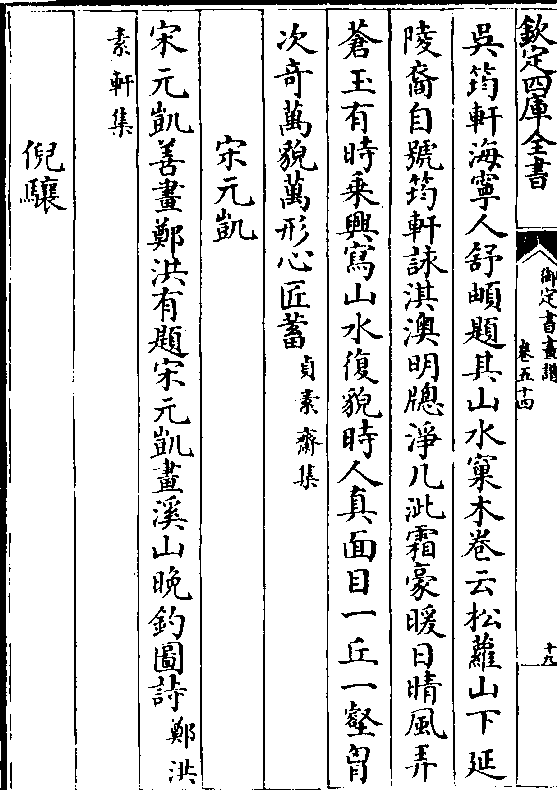 欽定四庫全書
御定書畫譜
卷五十四
十九
吳筠軒海寧人舒頔題其山水窠木卷云松蘿山下延
陵裔自號筠軒詠淇澳明牕淨几泚霜豪暖日晴風弄
蒼玉有時乗興寫山水復貌時人真面目一丘一壑胷
次奇萬貌萬形心匠蓄貞素齋集
宋元凱
宋元凱善畫鄭洪有題宋元凱畫溪山晚釣圖詩鄭洪
素軒集
倪驤